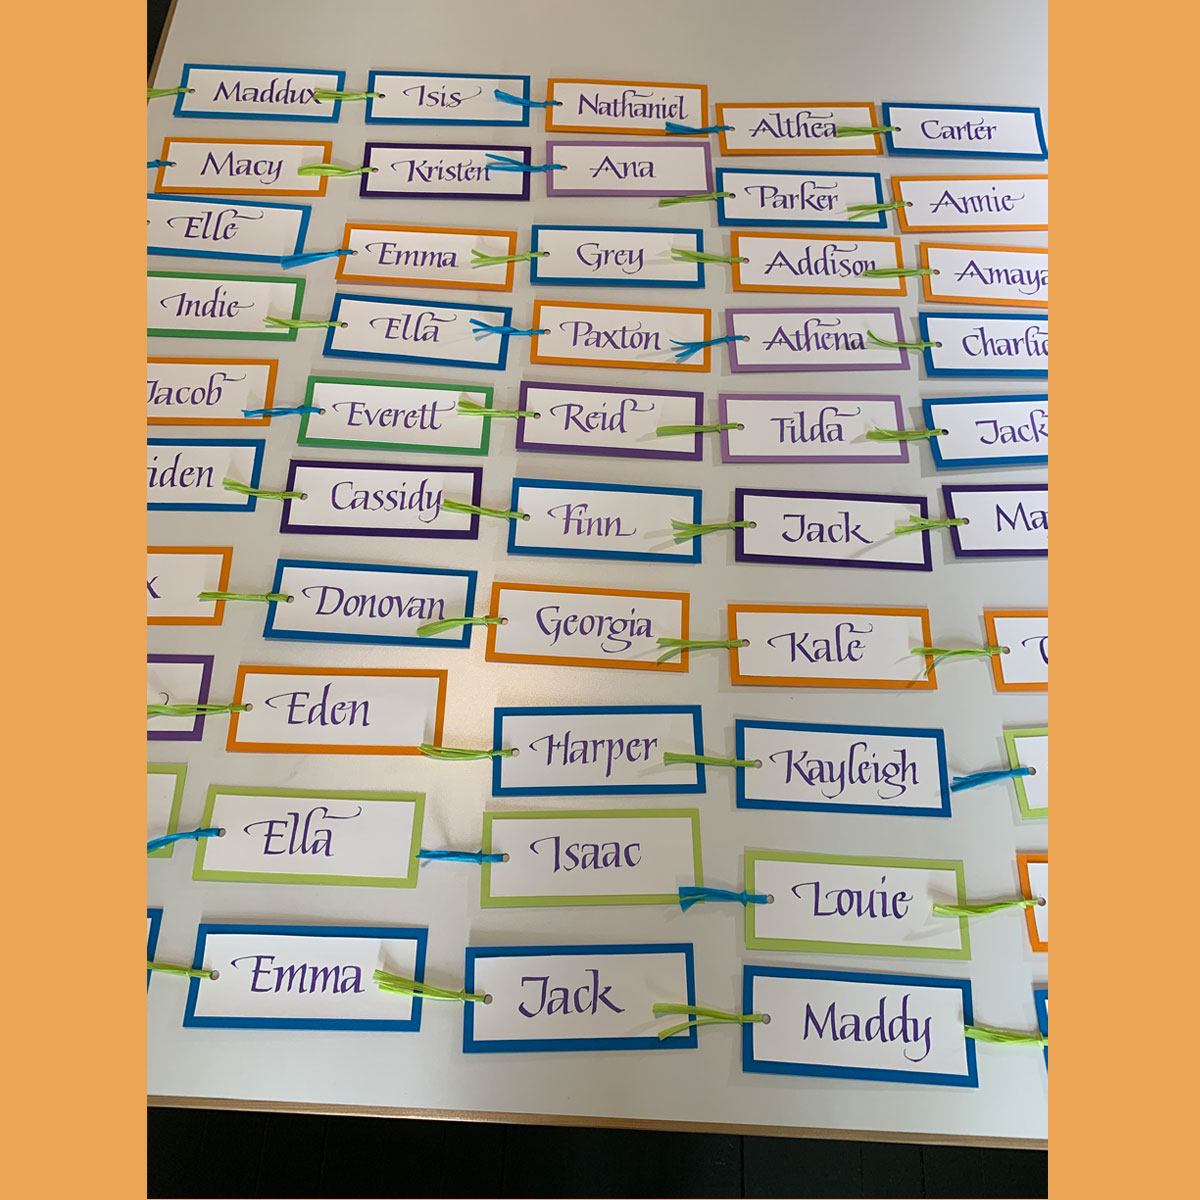 Maddux
Isis
Nathaniel
Althea
Carter
Macy
Kristen
Ana
Parker
Annie
Elle
Emma
Grey
Addison
Amaya
Indie
Ella
Paxton
Athena
Charlie
Jacob
Everett
Reid
Tilda
Jack
iden
Cassidy
Finn
Jack
Ma
x
Donovan
Georgia
Kale
Eden
Harper
Kayleigh
Ella
Isaac
Louie
Emma
Jack
Maddy